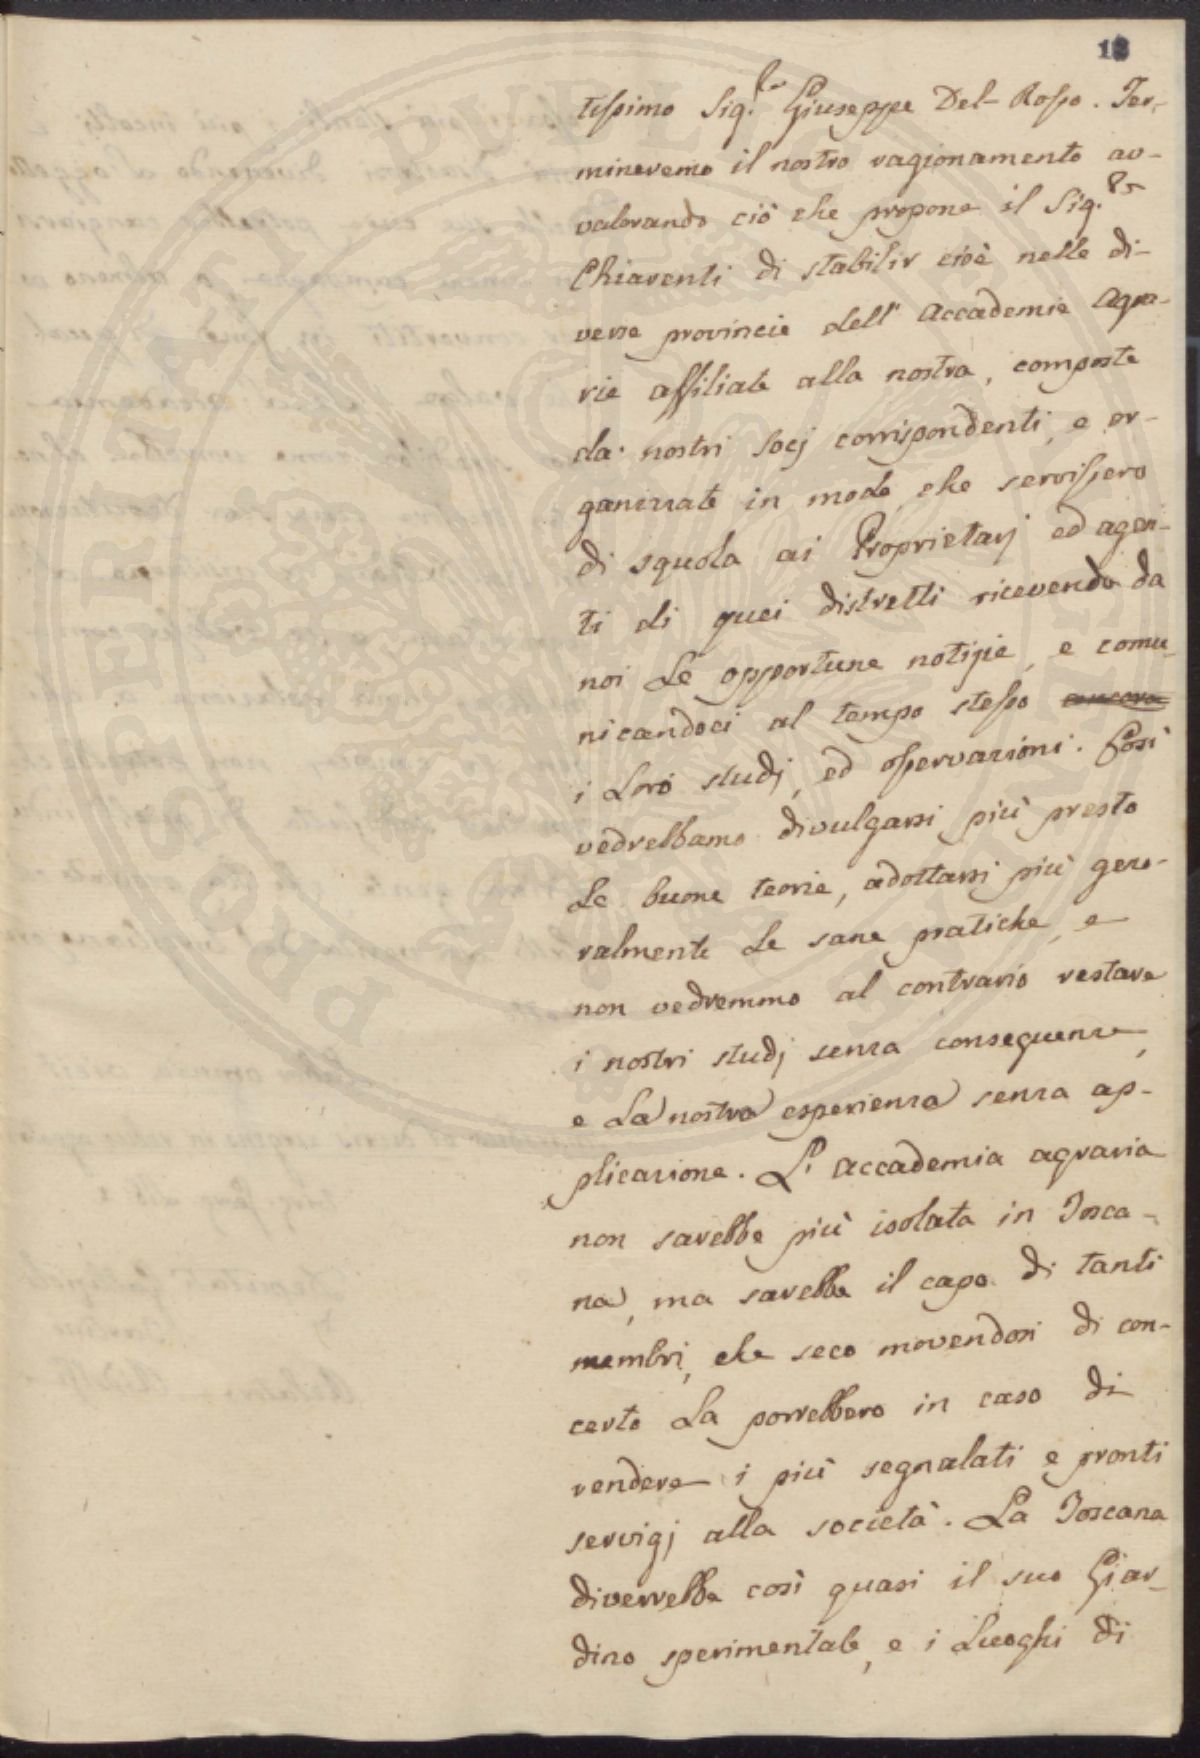 12
tissimo Sig.r Giuseppe Del-Rosso. Ter-
mineremo il nostro ragionamento av-
valorando ciò che propone il Sig.r
Chiarenti di stabilir cioè nelle di-
verse provincie dell' Accademie Agra-
rie affiliate alla nostra, composte
da' nostri Socj corrispondenti, e or-
ganizzate in modo, che servissero
di squola ai Proprietarj ed agen-
ti di quei distretti ricevendo da
noi Le opportune notizie, e comu-
nicandoci al tempo stesso ancora
i Loro studj, ed osservazioni. Così
vedrebbamo divulgarsi più presto
Le buone teorie, adottarsi più gene-
ralmente Le sane pratiche, e
non vedremmo al contrario restare
i nostri studj senza conseguenze,
e La nostra esperienza senza ap-
plicazione. L' accademia agraria
non sarebbe più isolata in Tosca-
na, ma sarebbe il capo di tanti
membri, che seco movendosi di con-
certo La porrebbero in caso di
rendere i più segnalati e pronti
servigj alla società. La Toscana
diverrebbe così quasi il suo Giar-
dino sperimentale, e i Luoghi di
PROSPERITATI PUBLICAE